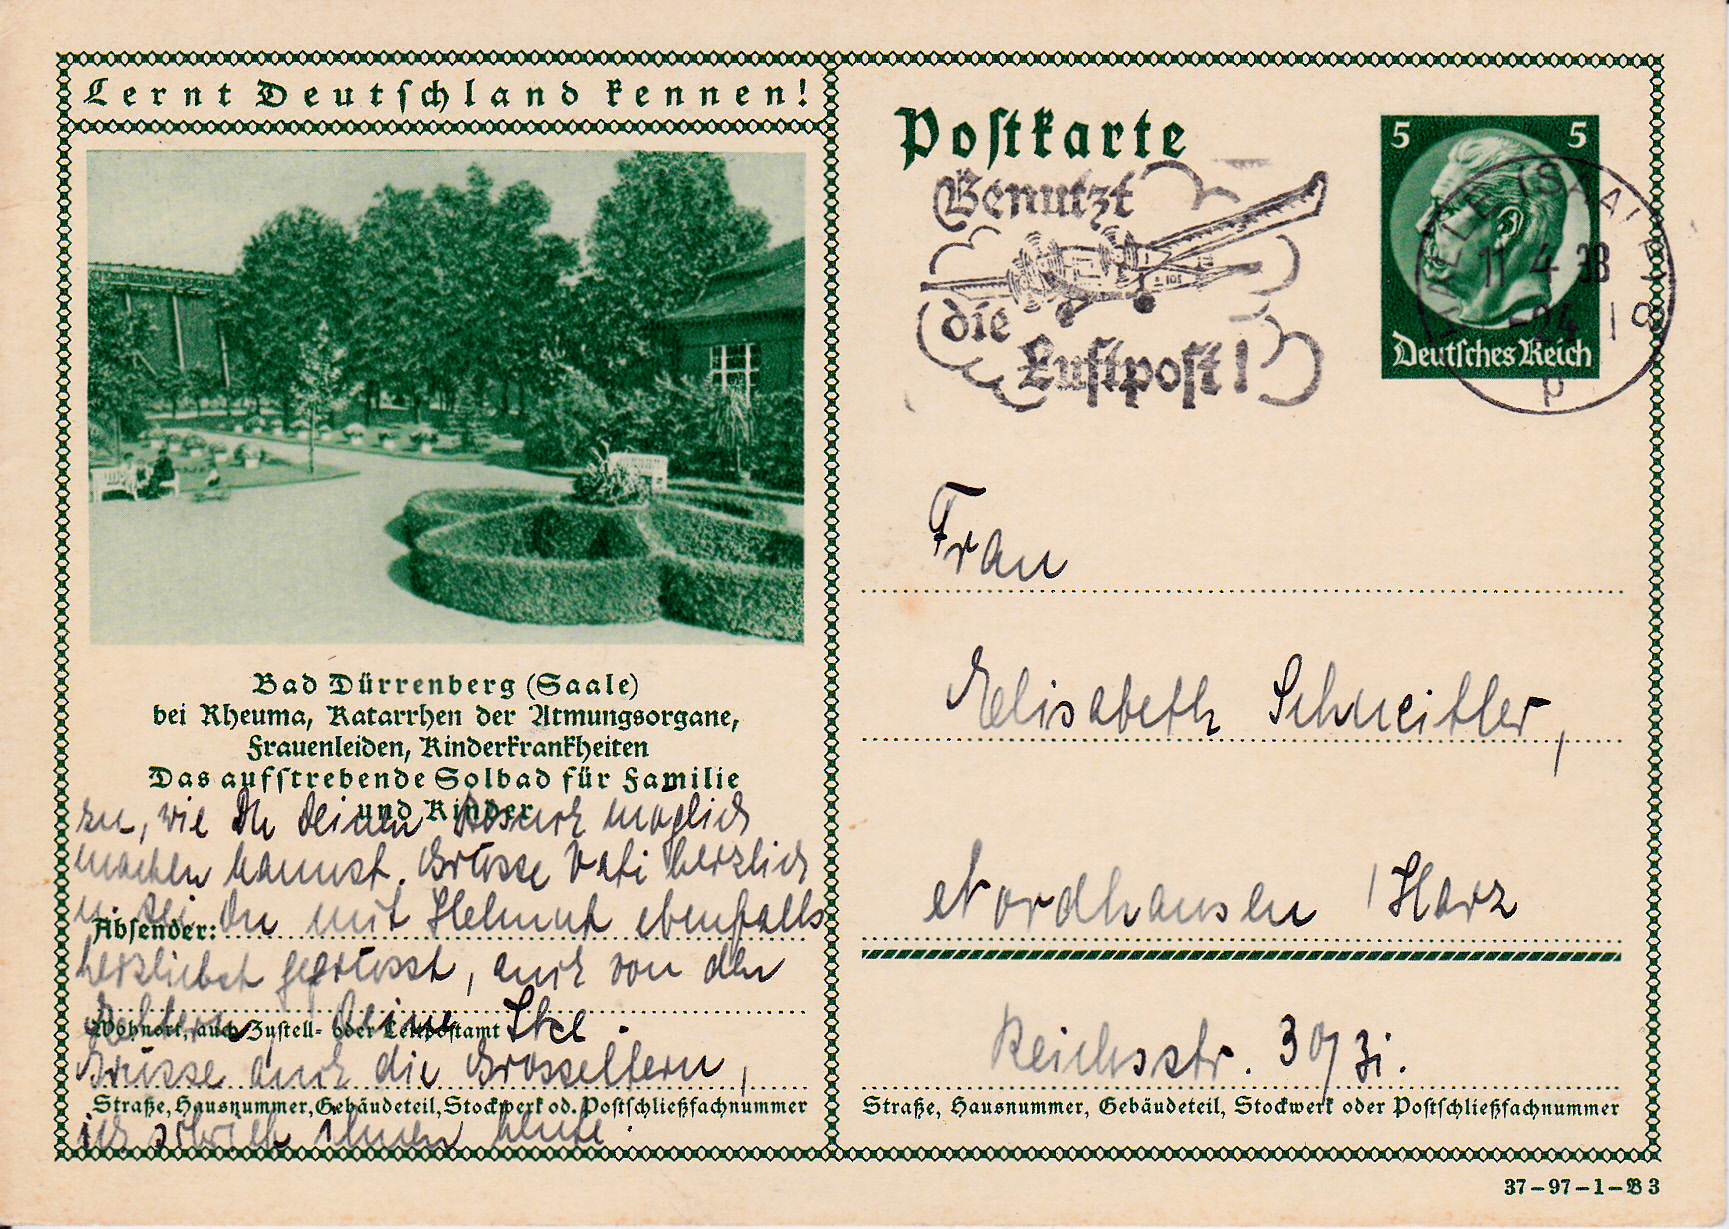 Lernt Deutschland kennen!
Bad Dürrenberg (Saale)
bei Rheuma, Katarrhen der Atmungsorgane,
Frauenleiden, Kinderkrankheiten
Das aufstrebende Solbad für Familie
und Kinder
zu, wie Du Deinen Besuch möglich
machen kannst. Grüsse Vati herzlich
u. sei Du mit Helmut ebenfalls
Absender:
herzliebst gegrüsst, auch von den
Deine Ilse.
Wohnort, auch Zustell- oder Leitpostamt
Grüsse auch die Grosseltern,
Straße, Hausnummer, Gebäudeteil, Stockwerk od. Postschließfachnummer
ich schrieb ihnen heute.
Postkarte
Benutzt
die
Luftpost!
5 5
Deutsches Reich
HALLE (SAALE)
11.4.38
-24
p
Frau
Elisabeth Schneitler,
Nordhausen / Harz
Reichsstr. 30/31.
Straße, Hausnummer, Gebäudeteil, Stockwerk oder Postschließfachnummer
37-97-1-B3